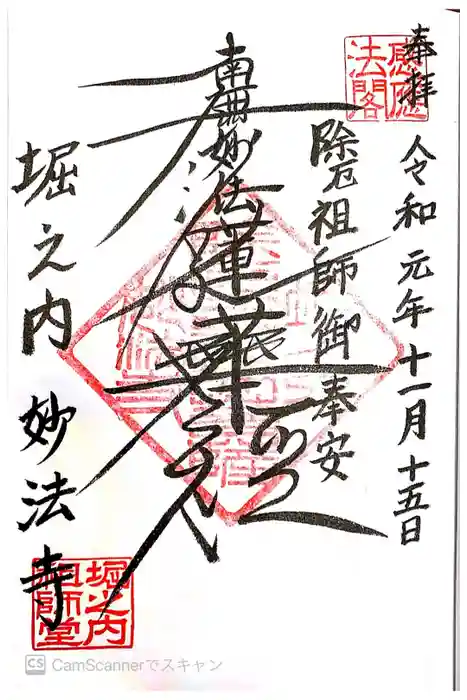 奉拝
令和元年十一月十五日
除厄祖師御奉安
南無妙法蓮華経
堀之内 妙法寺
感應
法閣
堀之内
祖師堂
CS CamScannerでスキャン